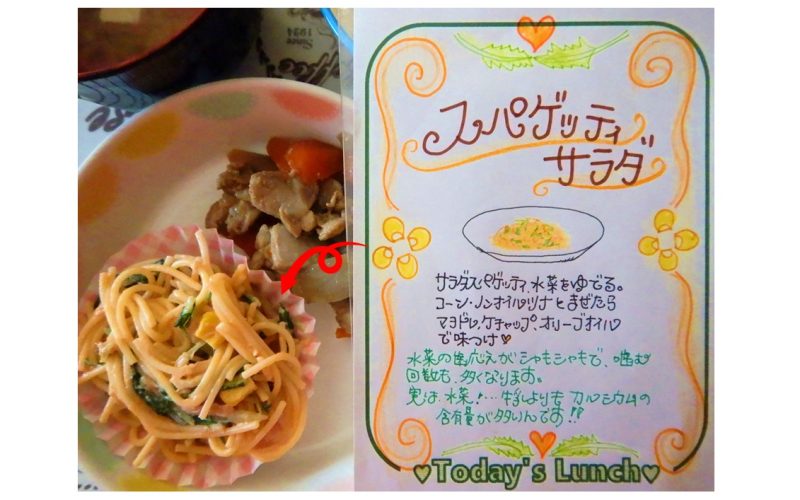 Since
1994
Coffee
スパゲッティ
サラダ
サラダスパゲッティ、水菜をゆでる。
コーン・ノンオイルツナとまぜたら
マヨドレ、ケチャップ、オリーブオイル
で味つけ♥
水菜の歯応えがシャキシャキで、噛む
回数も、多くなります。
実は、水菜!…牛乳よりも カルシウムの
含有量が多いんです!!
♥Today's Lunch♥